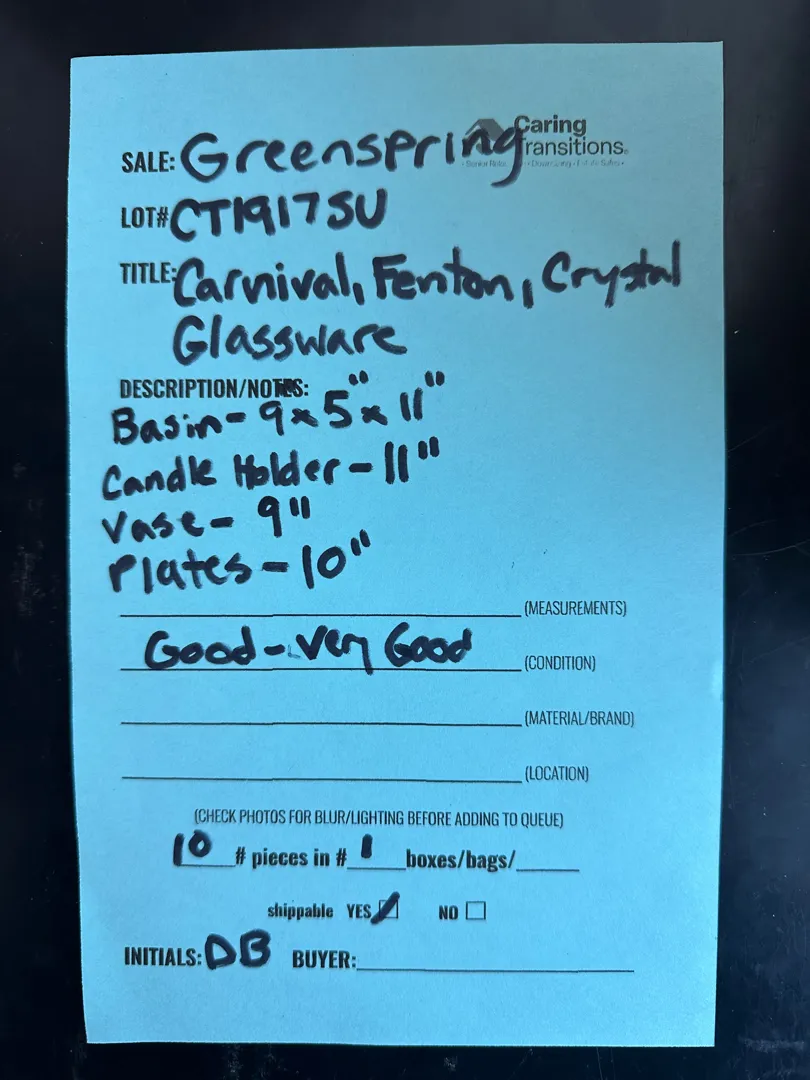 Caring
Transitions®
SALE: Greenspring
LOT# CT1917SU
TITLE: Carnival, Fenton, Crystal
Glassware
DESCRIPTION/NOTES:
Basin- 9x5"x11"
Candle Holder-11"
Vase- 9"
Plates-10"
(MEASUREMENTS)
Good-Very Good (CONDITION)
(MATERIAL/BRAND)
(LOCATION)
(CHECK PHOTOS FOR BLUR/LIGHTING BEFORE ADDING TO QUEUE)
10 # pieces in # 1 boxes/bags/
shippable YES NO
INITIALS: DB BUYER: